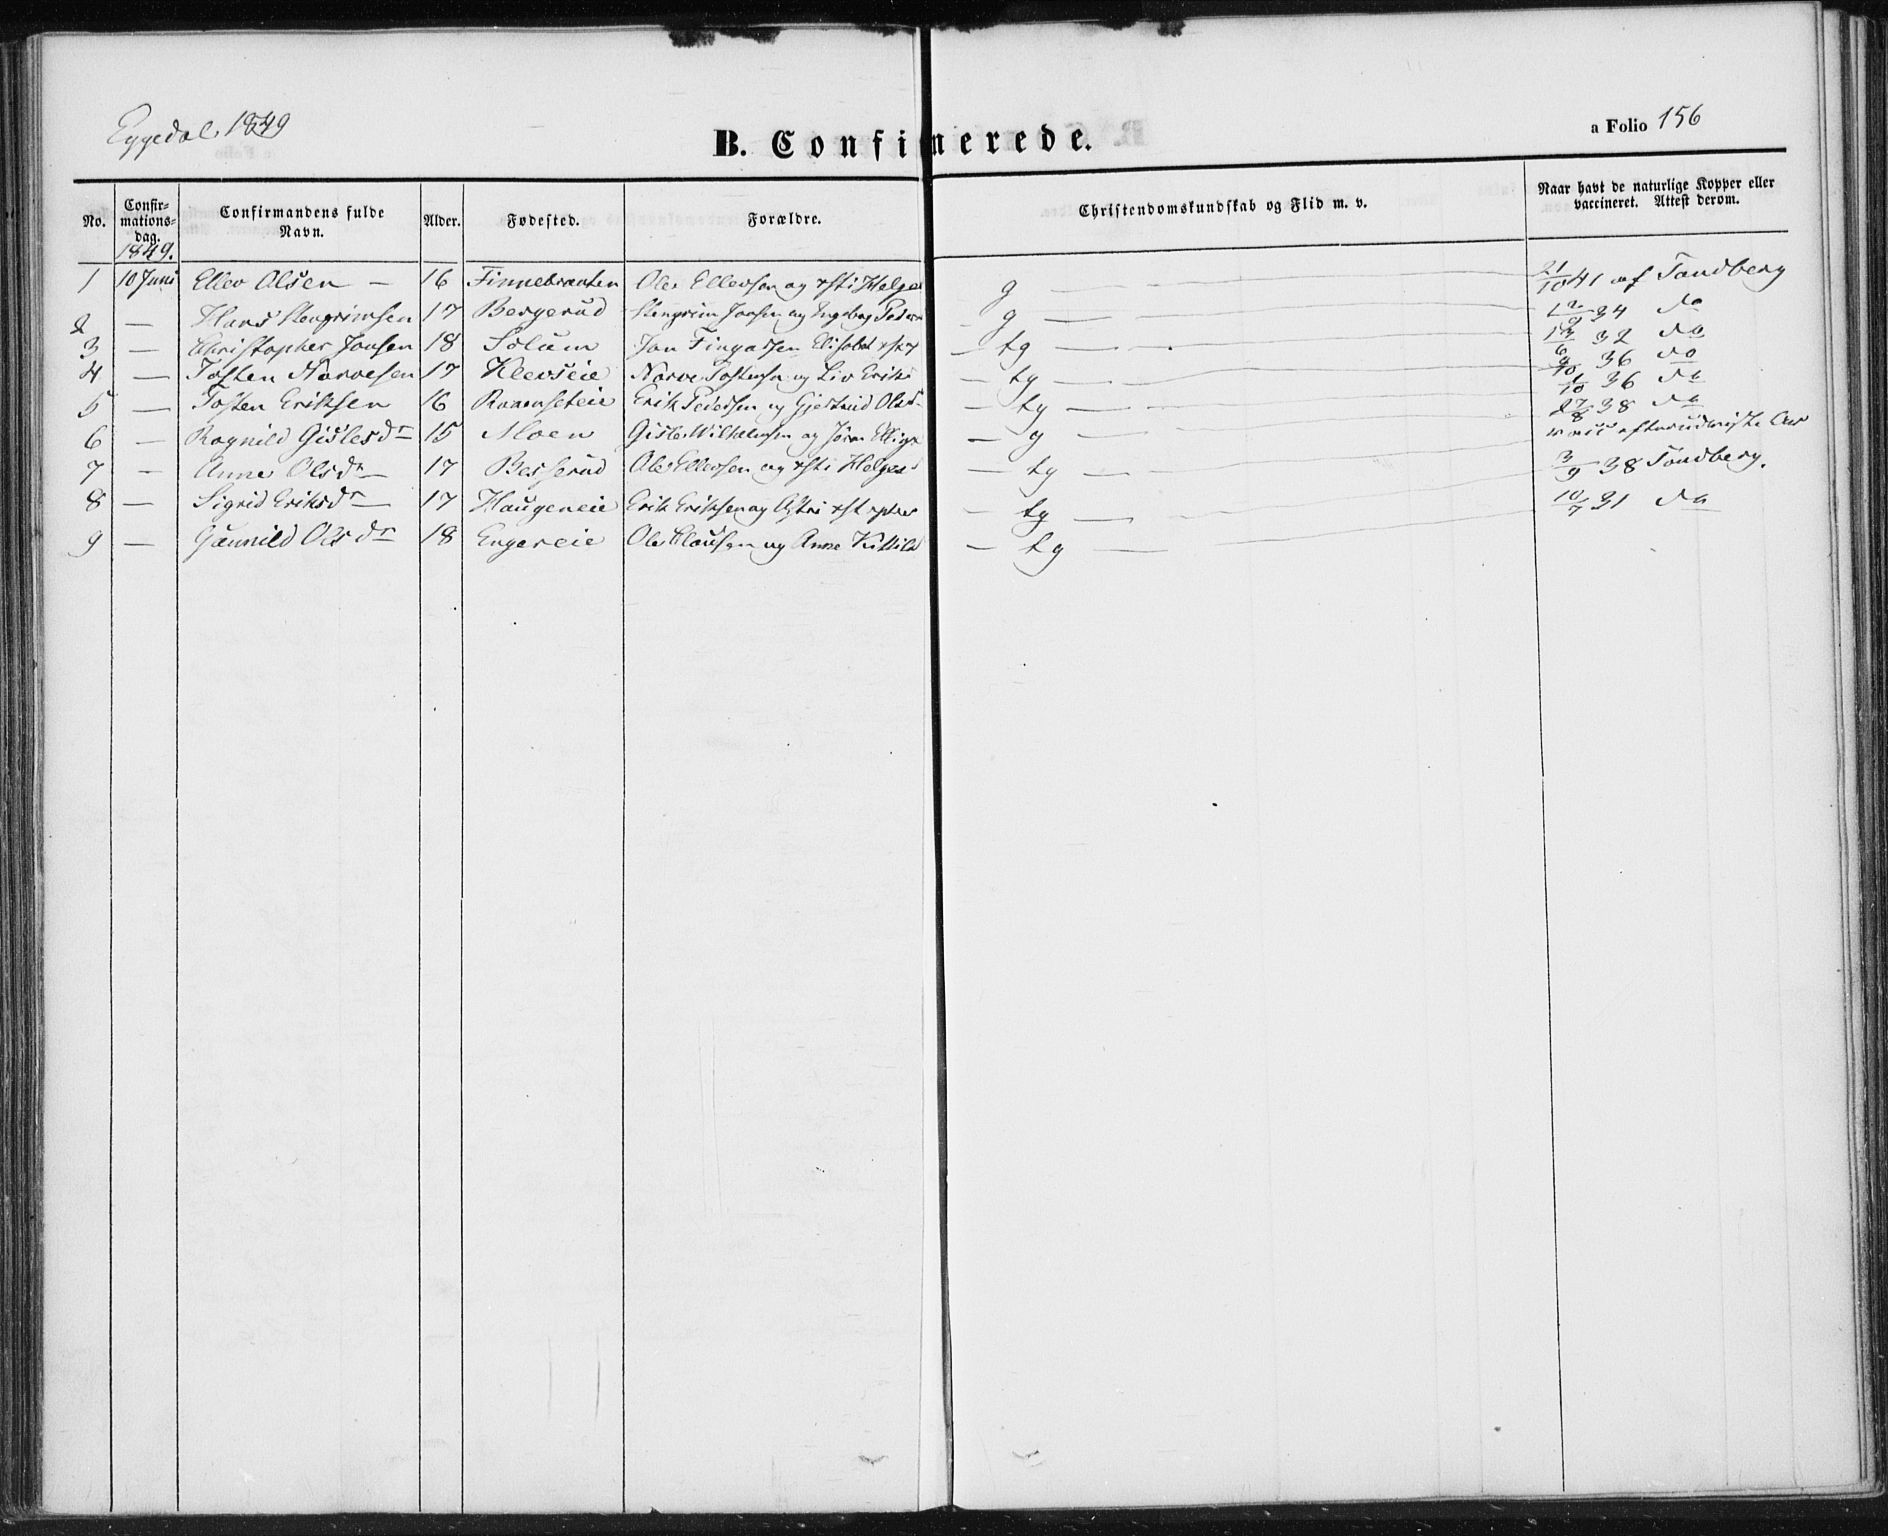 Eggedal 1849
B. Confirmerede.
a Folio 156
No. Confirmationsdag. Confirmandens fulde Navn. Alder. Fødested. Forældre. Christendomskundskab og Flid m. v. Naar havt de naturlige Kopper eller vaccineret. Attest derom.
1849.
1 10 Juni Ellev Olsen — 16 Finnebraaten Ole Ellevsen og Helges g — 21/10 41 af Tandberg
2 — Hans Stengrimsen 17 Bergerud Stengrim Jonsen og Ingebog Peders — g — 34 do
3 — Christopher Jonsen 18 Solum Jon Elisabet — tg — 32 do
4 — Tosten Narvesen 17 Klevseie Narve Tostensen og Liv Eriks — tg — 36 do
5 — Tosten Eriksen 16 Erik Pedersen og Gjertrud Ols — tg — 36 do
6 — Ragnild Gislesdr 15 Moen Gisle Wilhelmsen og — g — 27/8 38 do
7 — Anne Olsdr — 17 Besserud Ole Ellevsen og Helges — tg —
8 — Sigrid Eriksdr — 17 Haugeneie Erik Eriksen og — tg — 3/9 38 Tandberg.
9 — Gunnild Olsdr 18 Engereie Ole Clausen og Anne Kittils — tg — 10/7 31 do